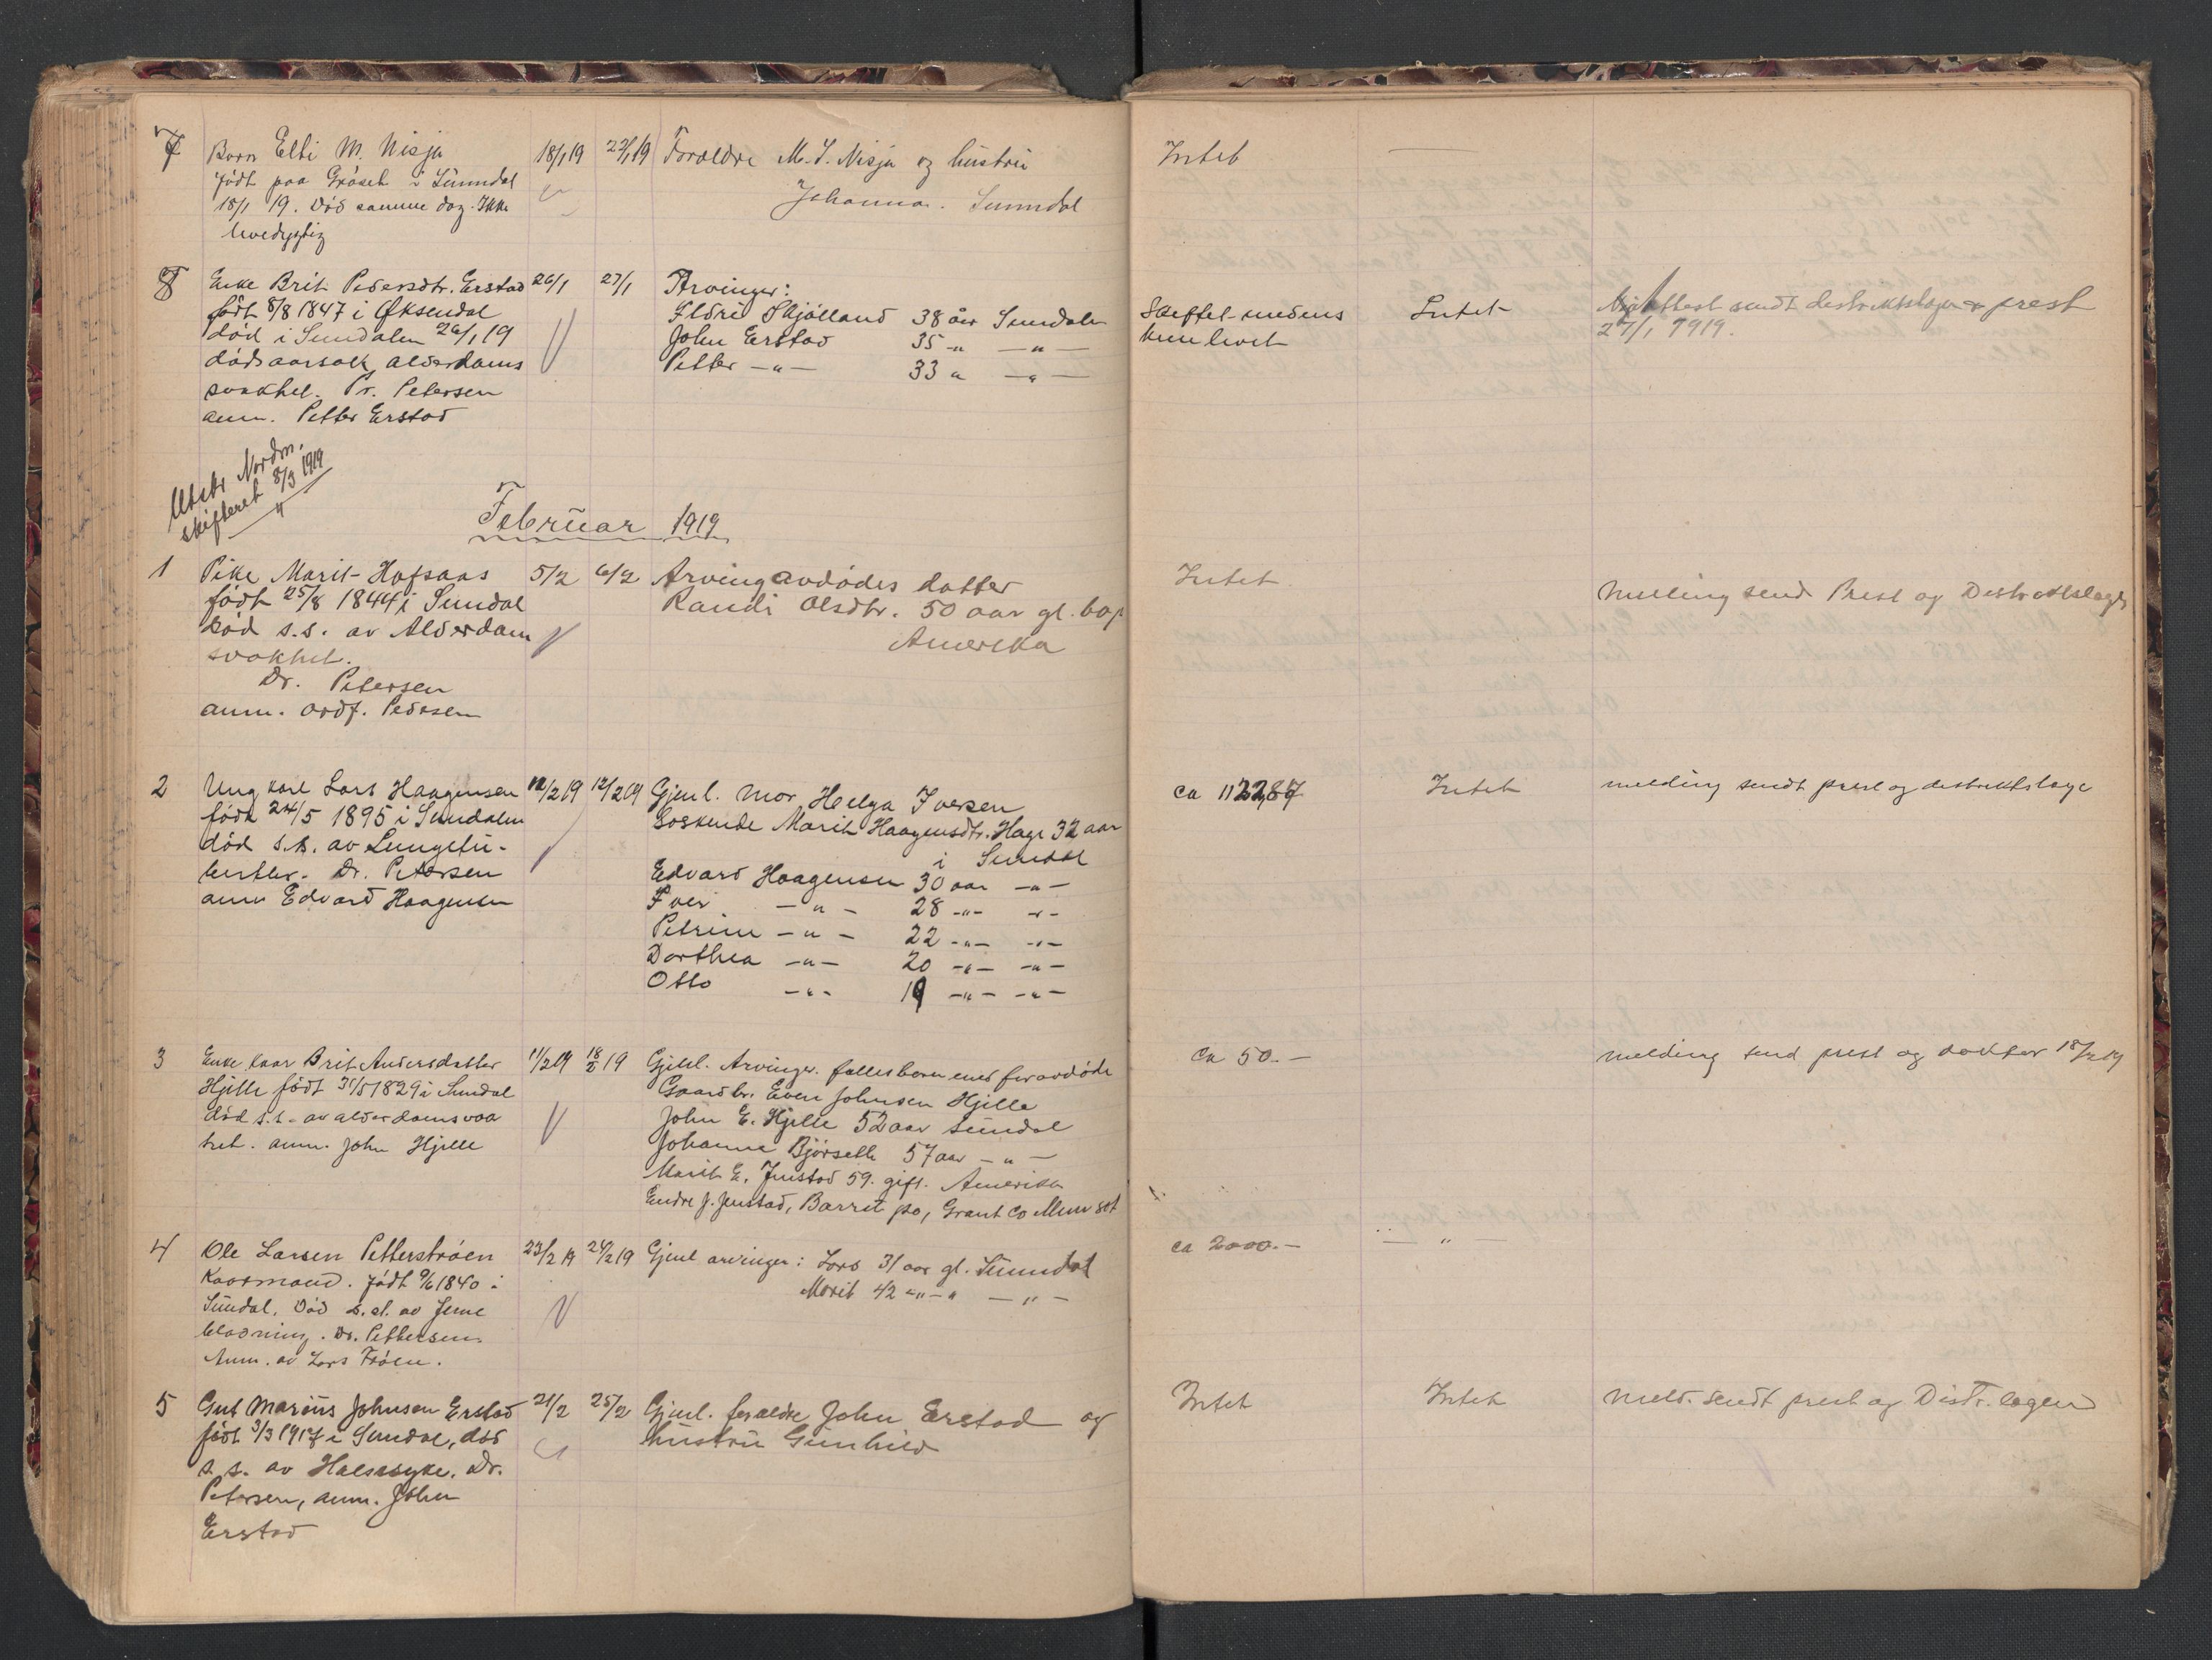 7 Barn Elbi M. Nisja 18/1 19 22/1 19 Foraldre M. I. Nisja og hustru Intet —
født paa Grøset i Sunndal Johanna. Sunndal
18/1 19. Død samme dag. Ikke
levedygtig
8 Enke Brit Pedersdtr. Erstad 26/1 27/1 Arvinger:
født 8/8 1847 i Øksendal Eldri Skjølland 38 aar Sundalen Skiftet medens Intet sendt destriktslægen & prest
død i Sundalen 26/1 19 John Erstad 35 -"- —"— hun levet 27/1 1919.
dødsaarsak alderdoms Petter —"— 33 " —"—
svakhet. Dr. Petersen
anm. Petter Erstad
Utskr Nordm.
skifteret 8/3 1919
"
Februar 1919
1 Pike Marit Hofsaas 5/2 6/2 Arving avdødes datter Intet
født 25/8 1844 i Sundal Randi Olsdtr. 50 aar gl. bop Melling send Prest og Destriktslæge
Død s.s. av Alderdom Amerika
svakhet.
Dr. Petersen
anm. ordf. Pedersen
2 Ung karl Lars Haagensen 12/2 19 12/2 19 Gjenl. Mor Helga Iversen ca 112287 Intet melding sendt prest og destriktslæge
født 24/5 1895 i Sundalen Søskende Marit Haagensdtr. Hage 32 aar
død s.s. av Lungetu- i Sundal
berkler. Dr. Petersen Edvard Haagensen 30 aar —"—
anm Edvard Haagensen Iver —"— 28 -"- -"-
Petrine —"— 22 -"- -"-
Dorthea —"— 20 -"- —"—
Otto -"- 19 -"- -"-
3 Enke kaar Brit Andersdatter 11/2 19 18/2 19 Gjenl. Arvinger. fellesbarn med foravdøde Ca 50.— melding send prest og doktor 18/2 19
Hjelle født 31/5 1829 i Sundal Gaardbr. Even Johnsen Hjelle
død s.s. av alderdomsvaa John E. Hjelle 52 aar Sundal
het. anm. John Hjelle Johanna Bjørseth 57 aar —"—
Marit E. Jenstad 59. gift. Amerika
Endre J. Jenstad, Barret po, Grant Co Minn
4 Ole Larsen Petterstrøen 23/2 19 24/2 19 Gjenl arvinger: Lars 31 aar gl. Sunndal ca 2000.— — " —
Kaarmand. født 9/6 1840 i Marit 42 -"-" — " —
Sundal. Død s.st. av Jerne
blødning. Dr. Pettersen.
Anm. av Lars Trøen.
5 Gut Marius Johnsen Erstad 21/2 25/2 Gjenl. foraldre John Erstad og Intet Intet Meld. sendt prest og Distr. lægen
født 3/3 1917 i Sundal, død hustru Gunhild
s. s. av Halssyke. Dr.
Petersen, anm. John
Erstad